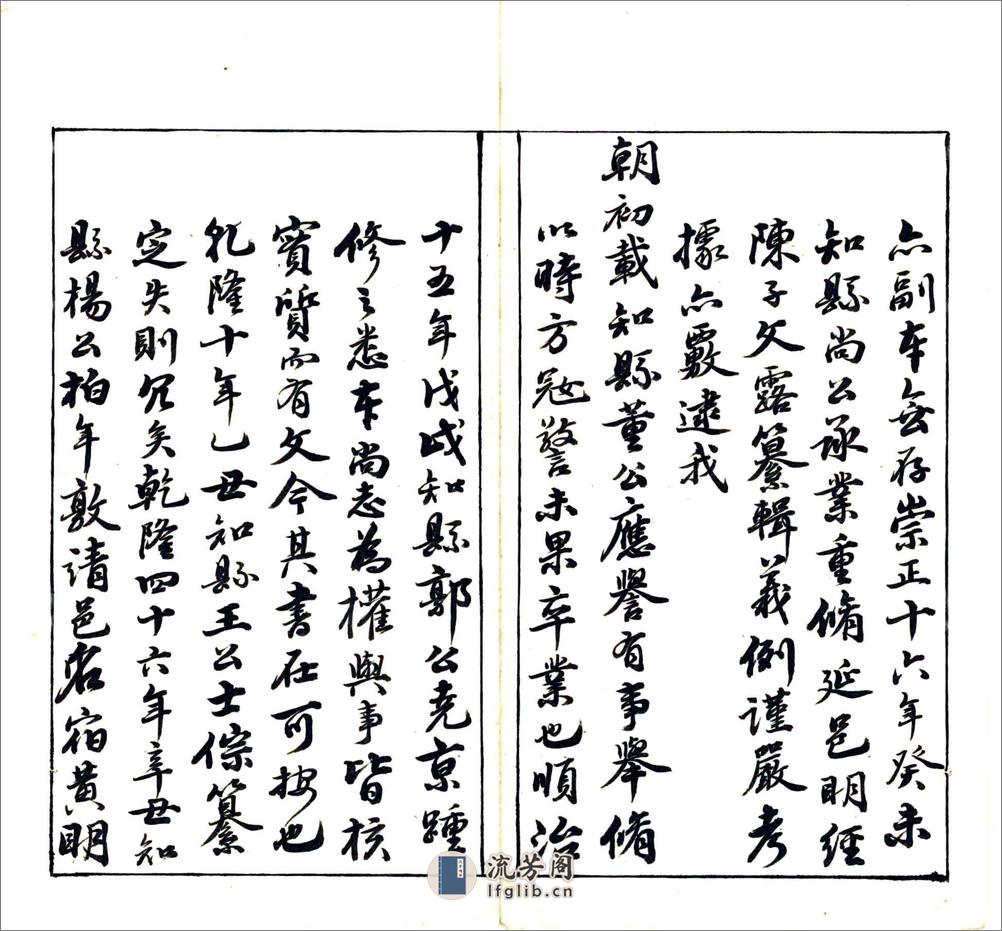 亦副本無存崇正十六年癸未
知縣尚公承業重脩延邑明經
陳子文露纂輯義例謹嚴考
據亦覈逮我
朝初載知縣董公應譽有事舉脩
以時方寇警未果卒業也順治
十五年戊戌知縣郭公堯京踵
修之悉本尚志為權輿事皆核
實質而有文今其書在可按也
乾隆十年乙丑知縣王公士倧纂
定失則冗矣乾隆四十六年辛丑知
縣楊公柏年敦請邑名宿黃明
流芳阁
lfglib.cn